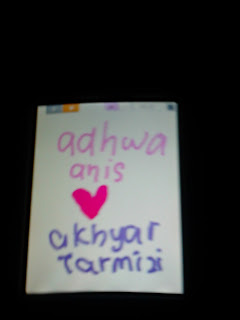 adhwa
anis
akhyar
Tarmizi